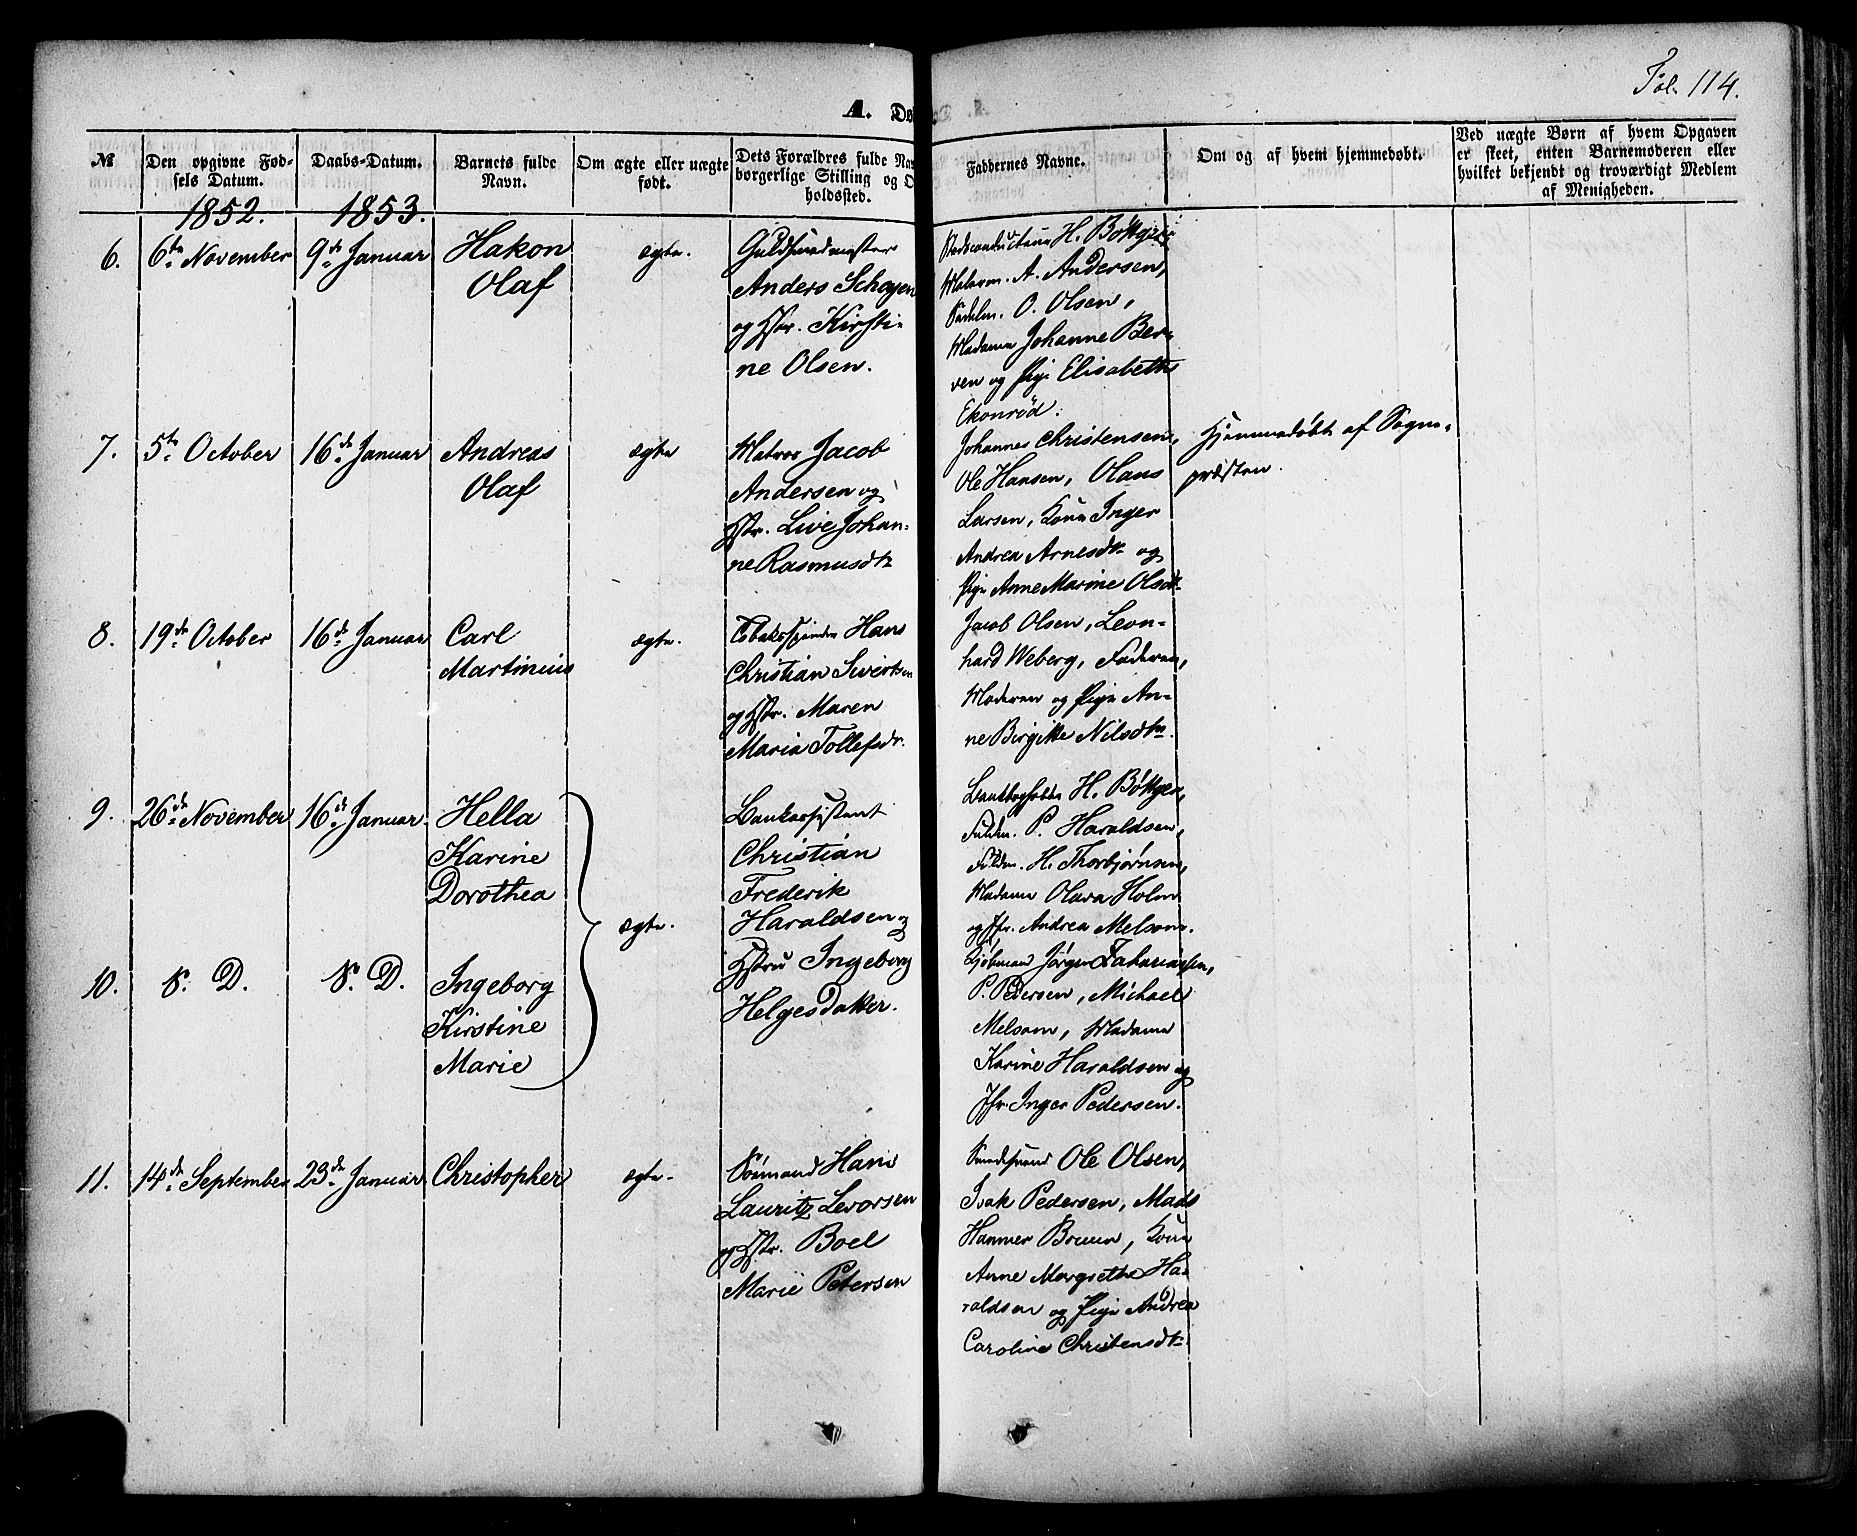 Fol. 114.
A. Dø
№
Den opgivne Fød-
sels Datum.
Daabs-Datum.
Barnets fulde
Navn.
Om ægte eller uægte
født.
Dets Forældres fulde Na
borgerlige Stilling og O
holdssted.
Faddernes Navne.
Om og af hvem hjemmedøbt.
Ved uægte Børn af hvem Opgaven
er skeet, enten Barnemoderen eller
hvilket bekjendt og troværdigt Medlem
af Menigheden.
1852.
1853.
6.
6te November
9de Januar
Hakon
Olaf
ægte.
Guldsmedmester
Anders Schøyen
og Hstr. Kirsti-
ne Olsen.
Stadsconducteur H. Bøttger,
A. Andersen,
O. Olsen,
Madame Johanne Ber-
ven og Pige Elisabeth
Ekonrød.
7.
5te October
16de Januar
Andreas
Olaf
ægte
Matros Jacob
Andersen og
Hstr. Live Johan-
ne Rasmusdtr
Johannes Christensen,
Ole Hansen, Olaus
Larsen, Kone Inger
Andrea Arnesdtr og
Pige Anne Marine Olsdtr
Hjemmedøbt af Sogne-
præsten.
8.
19de October
16de Januar
Carl
Martinius
ægte.
Tobakspinder Hans
Christian Sivertsen
og Hstr. Maren
Maria Tollefsdr.
Jacob Olsen, Leon-
hard Weberg, Faderen,
Moderen og Pige An-
ne Birgitte Nilsdtr.
9.
26de November
16de Januar
Hella
Karine
Dorothea
ægte.
Bankassistent
Christian
Frederik
Haraldsen og
Hstru Ingeborg
Helgesdatter.
Bankbogholder H. Bøttger,
Fuldm. P. Haraldsen,
Fuldm. H. Thorbjørnsen,
Madame Olava Holm
og Jfr. Andrea Melsom.
10.
S. D.
S. D.
Ingeborg
Kirstine
Marie
Kjøbmand Jørgen Zakariassen,
P. Pedersen, Michael
Melsom, Madame
Karine Haraldsen og
Jfr. Inger Pedersen.
11.
14de September
23de Januar
Christopher
ægte.
Sømand Hans
Lauritz Levorsen
og Hstr. Boel
Marie Petersen
Ole Olsen,
Isak Pedersen, Mads
Hammer Bruun, Kone
Anne Margrethe Ha-
raldsen og Pige Andrea
Caroline Christensdtr.